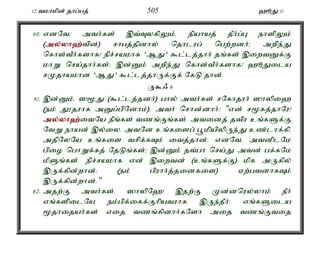 12 வமாமின் தாப்பத் 505 ஹூது 11
60. எனவே, அவர்கள் இவ்வுலகிலும், நியாயத் தீர்ப்பு நாளிலும்
(அல்லாஹ்வின்) சாபத்தினால் தொடரப் பெற்றனர்; அறிந்து
கொள்வீர்களாக! நிச்சயமாக 'ஆது' கூட்டத்தார் தங்கள் இறைவனுக்கு
மாறு செய்தார்கள்; இன்னும் அறிந்து கொள்வீர்களாக! ஹூதுடைய
சமுதாயமான 'ஆது' கூட்டத்தாருக்குக் கேடு தான்.
ருகூஃ 6
61. இன்னும், ஸமூது (கூட்டத்தனர்) பால் அவர்கள் சகோதரர் ஸாலிஹை
(நம் தூதராக அனுப்பினோம்); அவர் சொன்னார்: "என் சமூகத்தாரே!
அல்லாஹ்வையே நீங்கள் வணங்குங்கள். அவனைத் தவிர உங்களுக்கு
வேறு நாயன் இல்லை. அவனே உங்களைப் பூமியிலிருந்து உண்டாக்கி,
அதிலேயே உங்களை வசிக்கவும் வைத்தான். எனவே, அவனிடமே
பிழை பொறுக்கத் தேடுங்கள்; இன்னும் தவ்பா செய்து அவன் பக்கமே
மீளுங்கள். நிச்சயமாக என் இறைவன் (உங்களுக்கு) மிக அருகில்
இருக்கின்றான்; (நம் பிரார்த்தனைகளை) ஏற்பவனாகவும்
இருக்கின்றான்."
62. அதற்கு அவர்கள்; ஸாலிஹே! இதற்கு முன்னரெல்லாம் நீர்
எங்களிடையே நம்பிக்கைக்குரியவராக இருந்தீர்; எங்களுடைய
மூதாதையர்கள் எதை வணங்கினார்களோ அதை வணங்குவதை